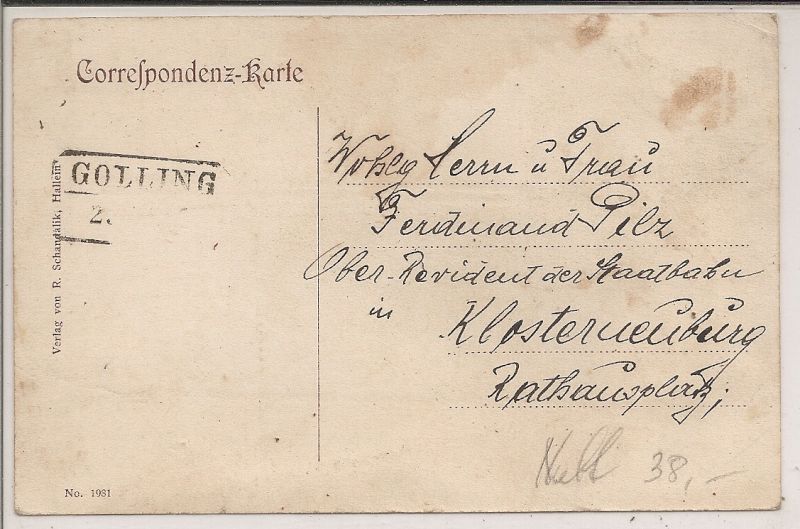 Correspondenz-Karte
GOLLING
2.
Verlag von R. Schandalik, Hallein
Wohlg Herrn u Frau
Ferdinand Pilz
Ober-Revident der Staatbahn
in
Klosterneuburg
Rathausplatz;
38,-
No. 1931